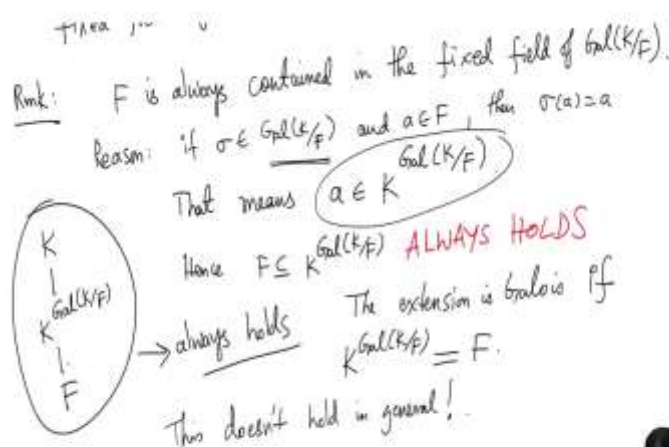 Rmk: F is always contained in the fixed field of Gal(K/F).
Reason: if σ ∈ Gal(K/F) and a ∈ F, then σ(a) = a
That means a ∈ K^Gal(K/F)
Hence F ⊆ K^Gal(K/F) ALWAYS HOLDS
K
|
K^Gal(K/F)
|
F
→ always holds
The extension is Galois if
K^Gal(K/F) = F.
This doesn't hold in general!